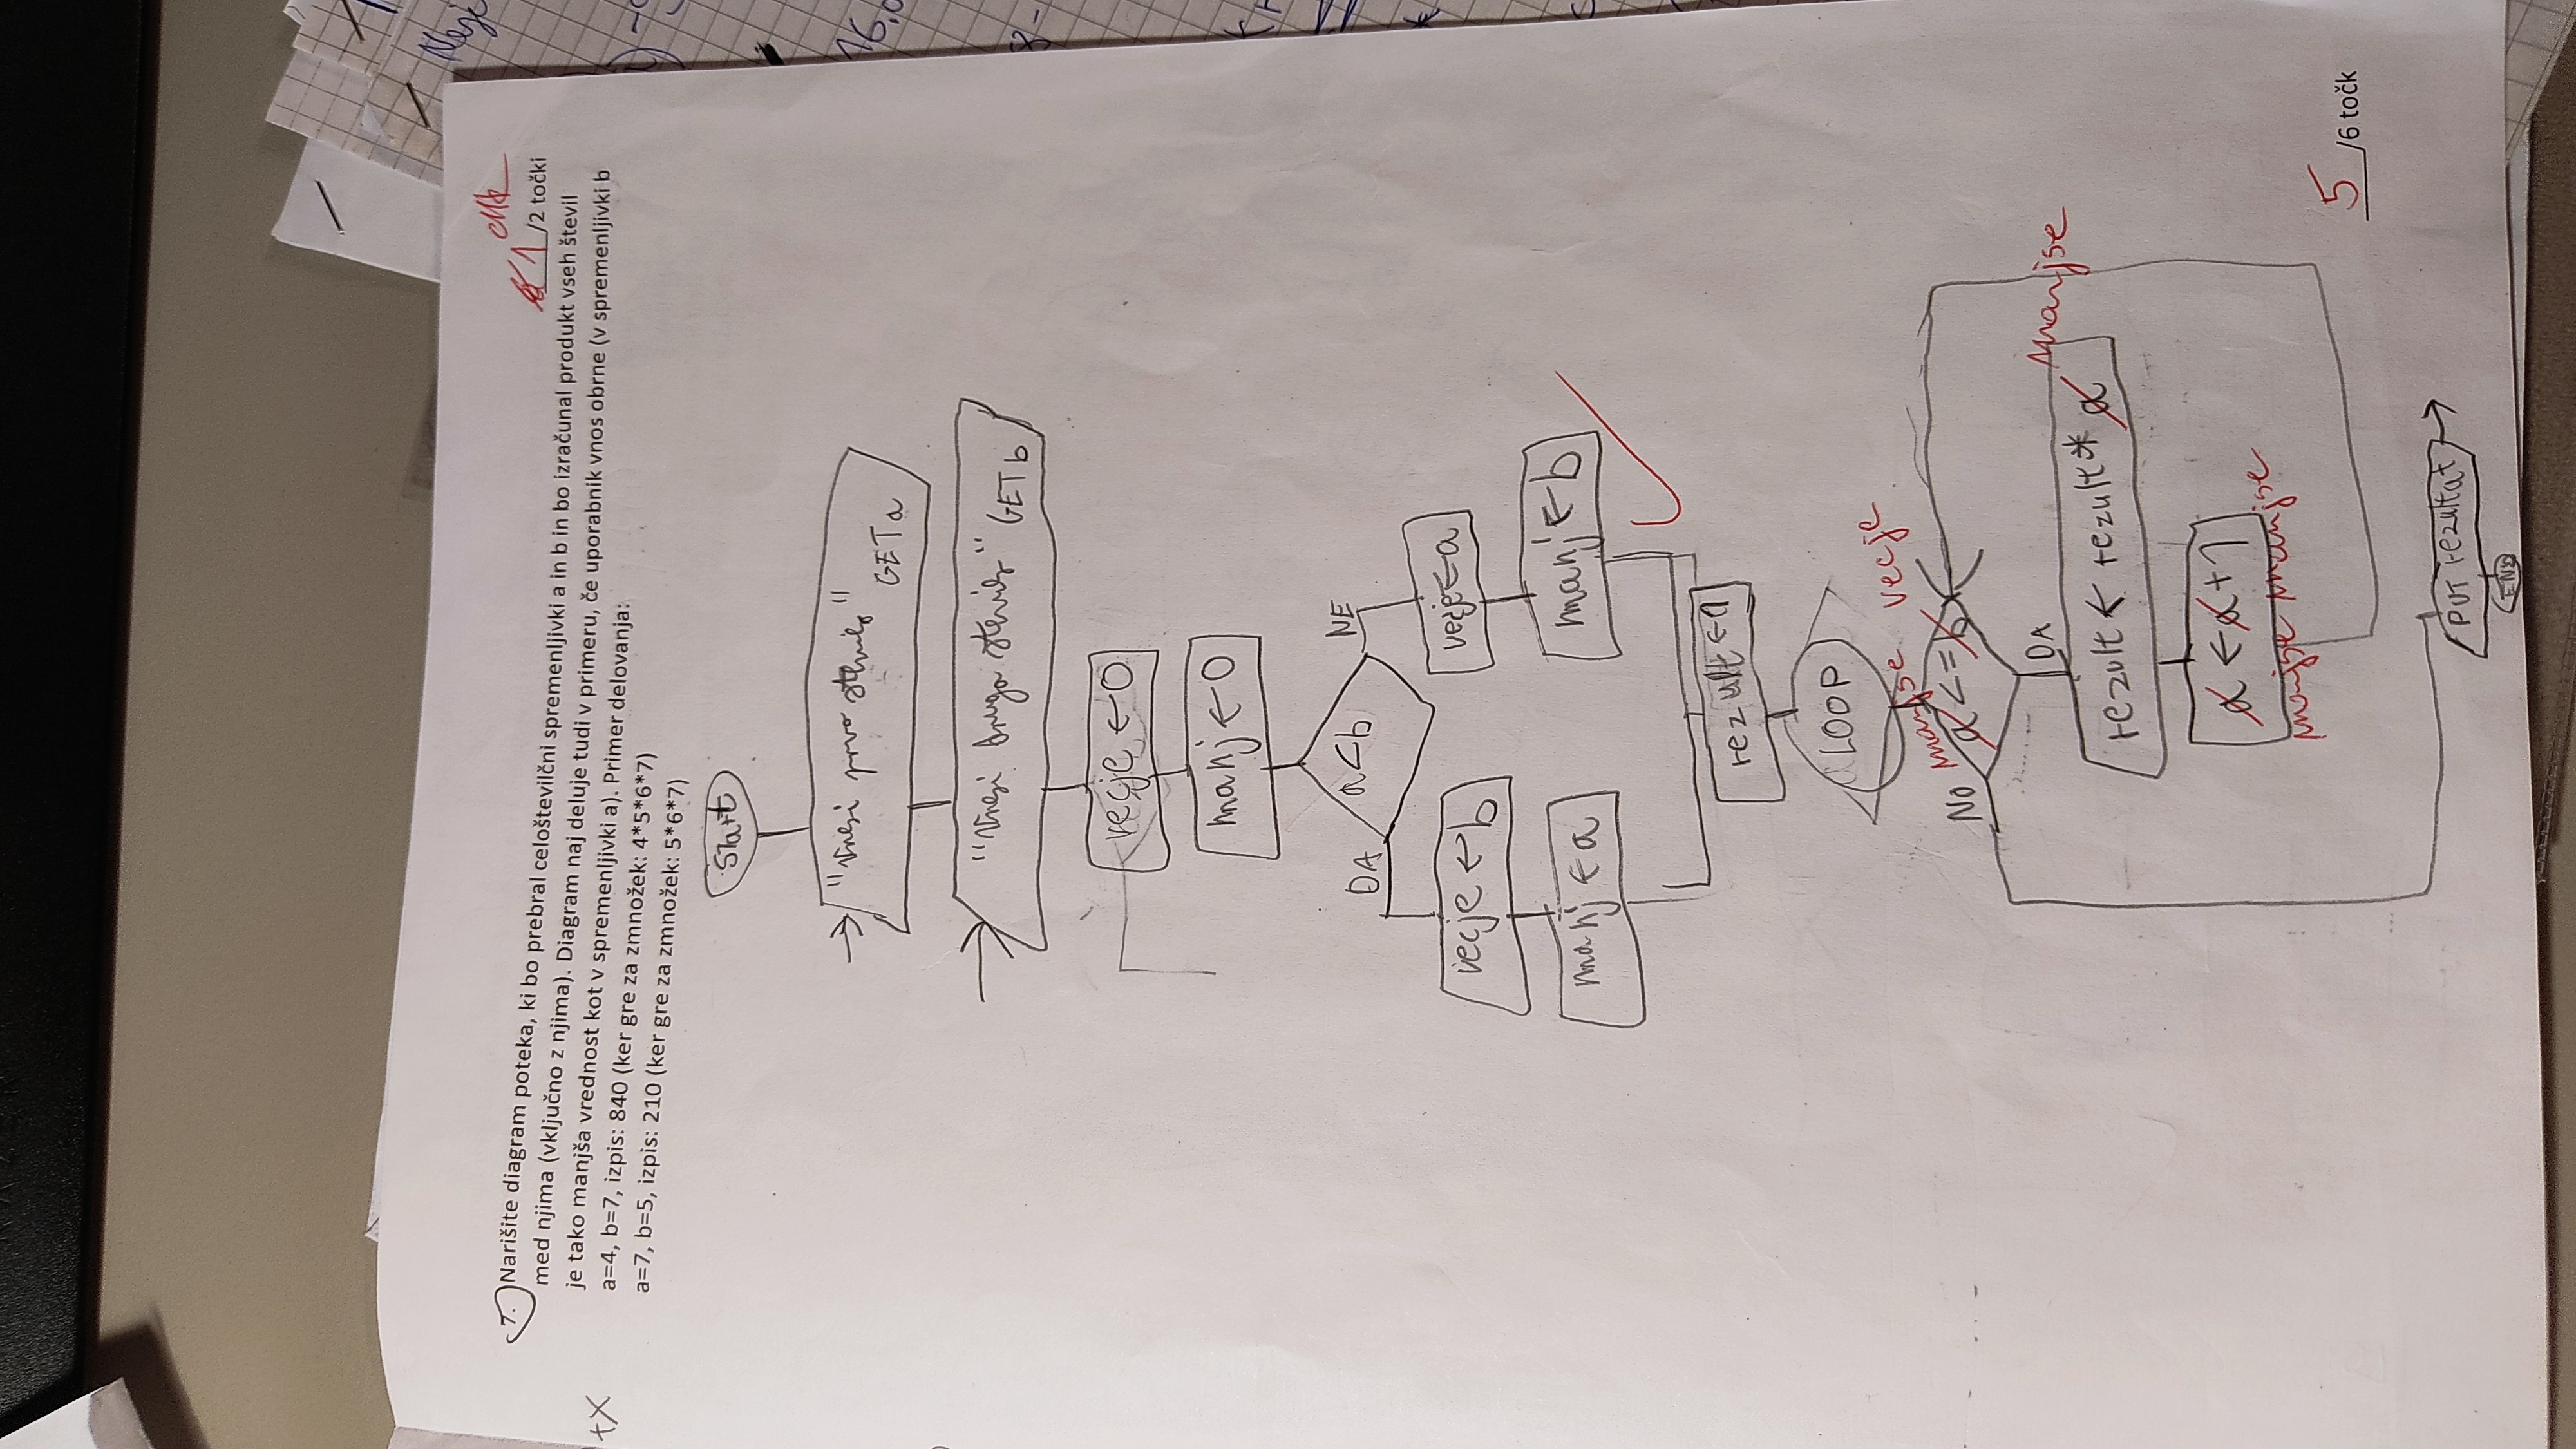 7. Narišite diagram poteka, ki bo prebral celoštevilčni spremenljivki a in b in bo izračunal produkt vseh števil
1/2 točki
med njima (vključno z njima). Diagram naj deluje tudi v primeru, če uporabnik vnos obrne (v spremenljivki b
je tako manjša vrednost kot v spremenljivki a). Primer delovanja:
a=4, b=7, izpis: 840 (ker gre za zmnožek: 4*5*6*7)
a=7, b=5, izpis: 210 (ker gre za zmnožek: 5*6*7)
+X
Start
"Vnesi prvo stevilo"
GET a
"Vnesi drugo stevilo" GET b
vecje ← 0
manj ← 0
a<b
DA
NE
vecje ← b
vecje ← a
manj ← a
manj ← b
rezult ← 1
LOOP
manjse vecje
No
a <= b
DA
manjse
rezult ← rezult * a
a ← a + 1
manjse manjse
5/6 točk
PUT rezultat
END